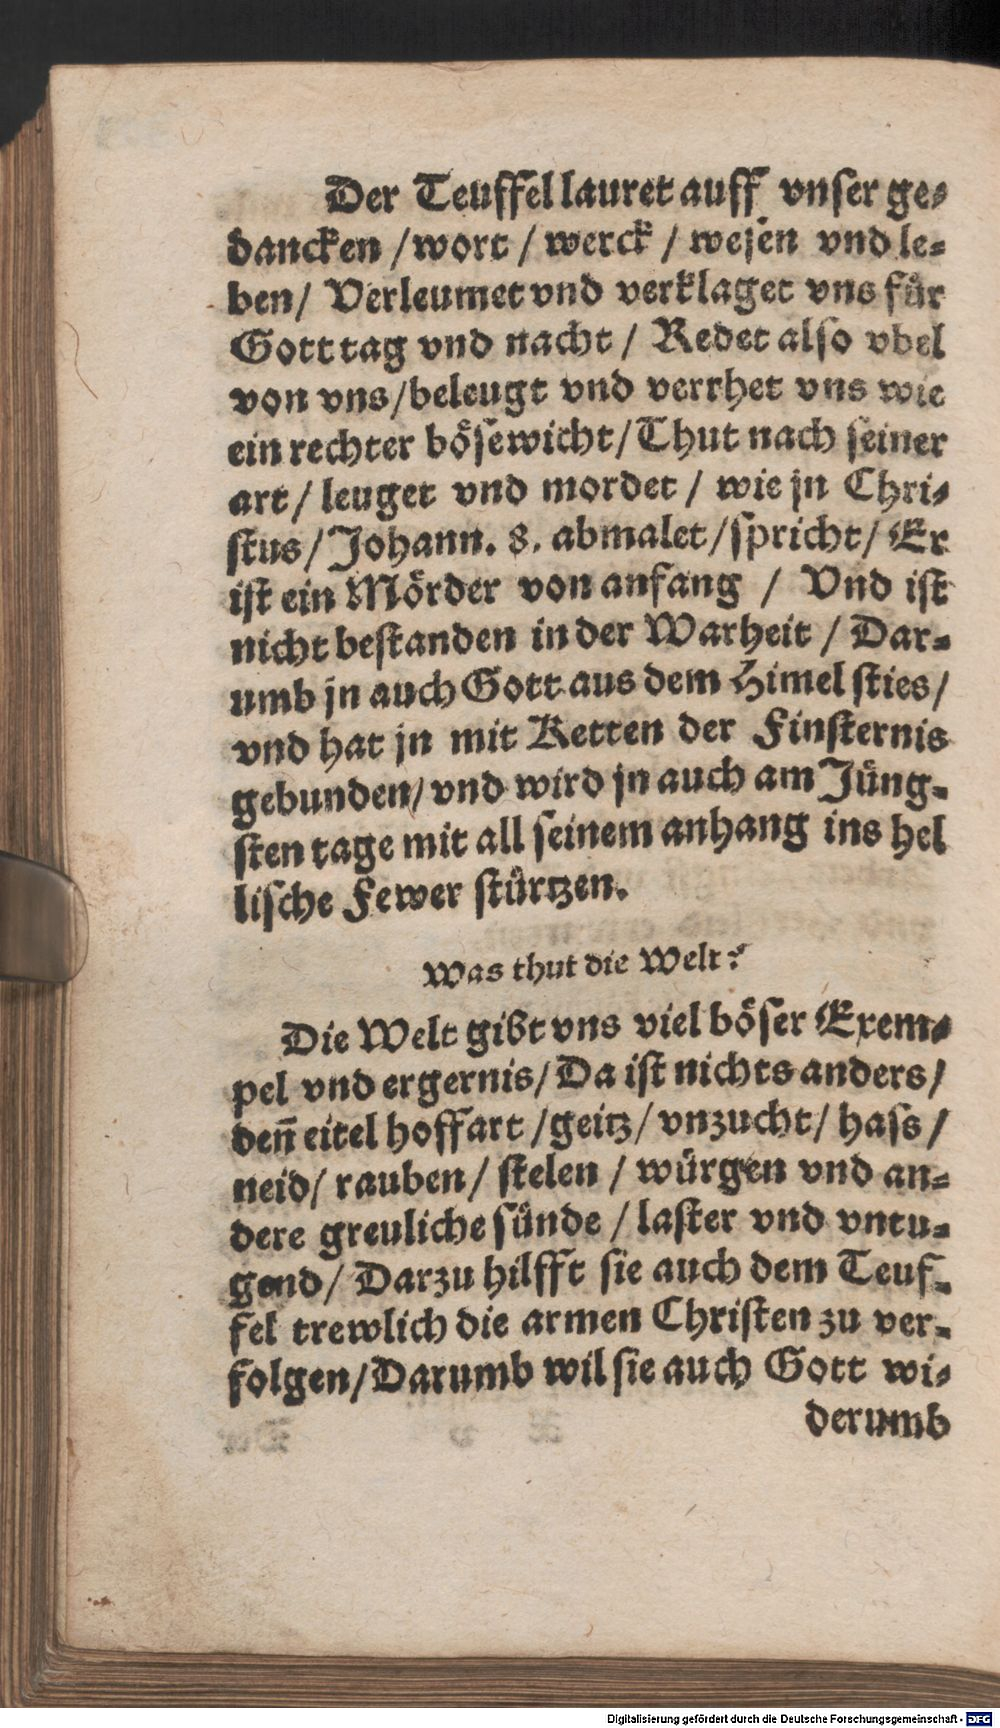 Der Teuffel lauret auff vnser ge-
dancken / wort / werck / wesen vnd le-
ben / Verleumet vnd verklaget vns für
Gott tag vnd nacht / Redet also vbel
von vns / beleugt vnd verrhet vns wie
ein rechter bösewicht / Thut nach seiner
art / leuget vnd mordet / wie jn Chri-
stus / Johann. 8. abmalet / spricht / Er
ist ein Mörder von anfang / Vnd ist
nicht bestanden in der Warheit / Dar-
umb jn auch Gott aus dem Himel sties /
vnd hat jn mit Ketten der Finsternis
gebunden / vnd wird jn auch am Jüng-
sten tage mit all seinem anhang ins hel
lische Fewer stürtzen.
Was thut die Welt?
Die Welt gibt vns viel böser Exem-
pel vnd ergernis / Da ist nichts anders /
deñ eitel hoffart / geitz / vnzucht / hass /
neid / rauben / stelen / würgen vnd an-
dere greuliche sünde / laster vnd vntu-
gend / Darzu hilfft sie auch dem Teuf-
fel trewlich die armen Christen zu ver-
folgen / Darumb wil sie auch Gott wi-
derumb
Digitalisierung gefördert durch die Deutsche Forschungsgemeinschaft - DFG